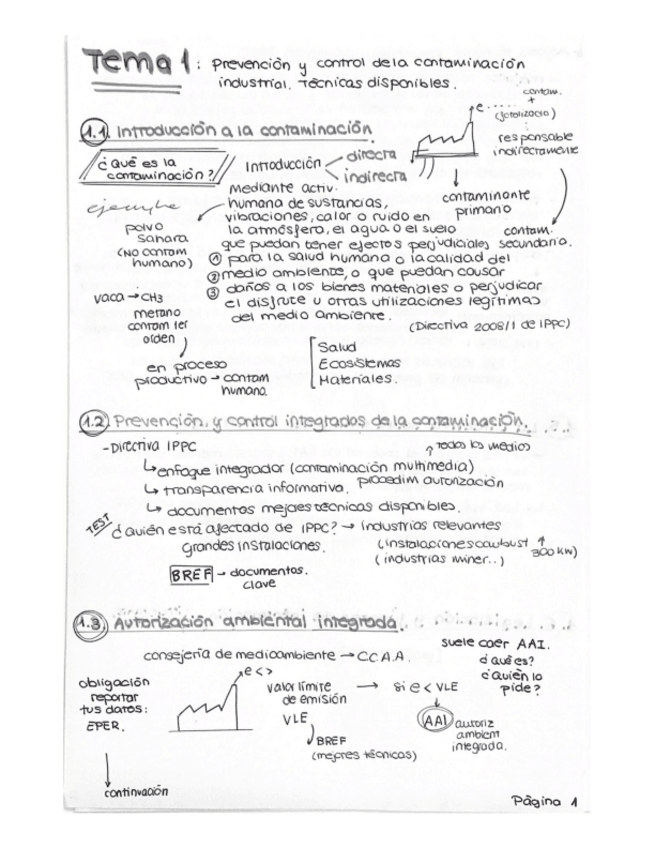 Tema 1: Prevención y control de la contaminación
industrial. Técnicas disponibles.
contam.
+
e ..... (fotolización)
responsable
indirectamente
1.1. Introducción a la contaminación
¿Qué es la
contaminación?
Introducción
directa
indirecta
contaminante
primario
contam.
secundario.
ejemplo
polvo
Sahara
(NO contam
humano)
Mediante activ.
humana de sustancias,
vibraciones, calor o ruido en
la atmósfera, el agua o el suelo
que puedan tener efectos perjudiciales
① para la salud humana o la calidad del
② medio ambiente, o que puedan causar
③ daños a los bienes materiales o perjudicar
el disfrute u otras utilizaciones legítimas
del medio ambiente.
(Directiva 2008/1 de IPPC)
vaca → CH3
metano
contam 1er
orden
en proceso
productivo → contam
humano.
Salud
Ecosistemas
Materiales.
1.2 Prevención, y control integrados de la contaminación.
- Directiva IPPC
↑ todos los medios
↳ enfoque integrador (contaminación multimedia)
↳ transparencia informativa. procedim autorización
↳ documentos mejores técnicas disponibles.
TEST
¿Quién está afectado de IPPC? → industrias relevantes
grandes instalaciones.
(instalaciones combust ↑
300 KW)
(industrias miner..)
BREF → documentos.
clave
1.3. Autorización ambiental integrada.
consejería de medioambiente → CCAA.
suele caer AAI.
¿qué es?
¿quién lo
pide?
obligación
reportar
tus datos:
EPER.
continuación
e <>
valor límite
de emisión
VLE
→ si e < VLE
AAI autoriz
ambient
integrada.
BREF
(mejores técnicas)
Página 1